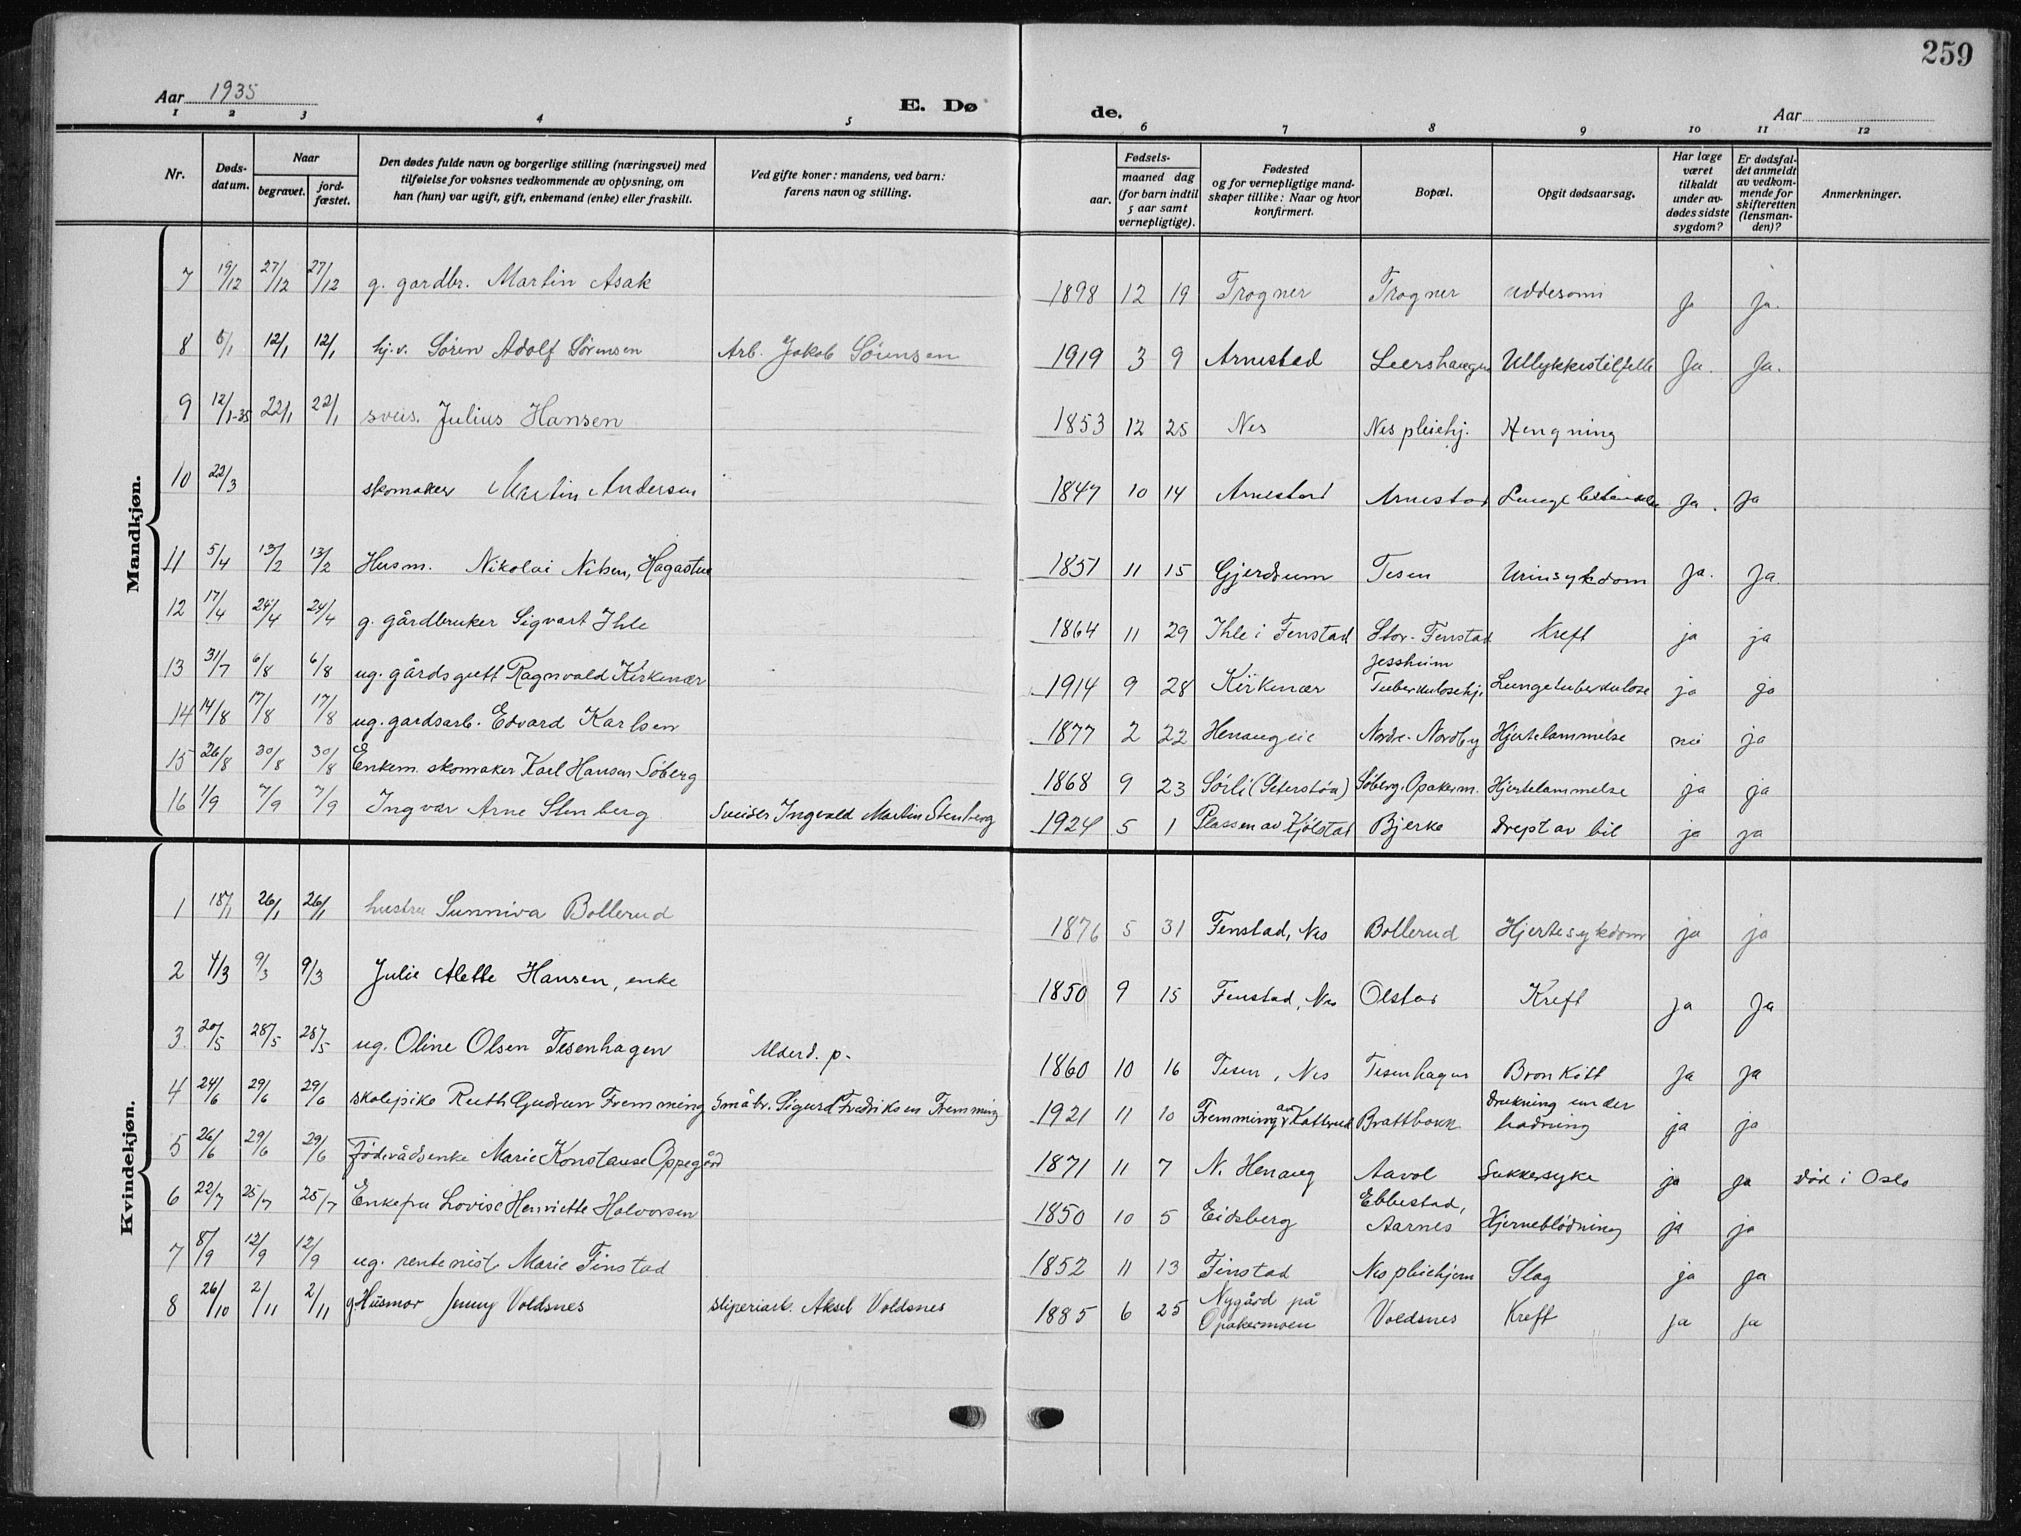 259
Aar 1935
E. Dø de.
Aar
1 2 3 4 5 6 7 8 9 10 11 12
Nr.
Døds-datum.
Naar
begravet.
jord-fæstet.
Den dødes fulde navn og borgerlige stilling (næringsvei) med
tilføielse for voksnes vedkommende av oplysning, om
han (hun) var ugift, gift, enkemand (enke) eller fraskilt.
Ved gifte koner: mandens, ved barn:
farens navn og stilling.
Fødsels-
aar.
maaned dag
(for barn indtil
5 aar samt
vernepligtige).
Fødested
og for vernepligtige mand-
skaper tillike: Naar og hvor
konfirmert.
Bopæl.
Opgit dødsaarsag.
Har læge
været
tilkaldt
under av-
dødes sidste
sygdom?
Er dødsfal-
det anmeldt
av vedkom-
mende for
skifteretten
(lensman-
den)?
Anmerkninger.
Mandkjøn.
7 19/12 27/12 27/12 g. gardbr. Martin Asak 1898 12 19 Trogner Trogner Ja Ja.
8 5/1 12/1 12/1 hj.v. Sören Adolf Sörensen Arb. Jakob Sörensen 1919 3 9 Arnestad Leershaugen Ullykkestilfelle Ja. Ja.
9 12/1-35 22/1 22/1 sveis. Julius Hansen 1853 12 25 Nes Nes pleiehj. Hengning
10 22/3 skomaker Martin Andersen 1847 10 14 Arnestad Arnestad Ja. Ja
11 5/4 13/2 13/2 Husm. Nikolai Nilsen, Hagastua 1851 11 15 Gjerdrum Tesen Urinsykdom Ja. Ja.
12 17/4 24/4 24/4 g. gårdbruker Sigvart Ihle 1864 11 29 Ihle i Fenstad Stor-Fenstad Kreft ja ja
13 31/7 6/8 6/8 ug. gårdsgutt Ragnvald Kirkenær 1914 9 28 Kirkenær Jessheim Tuberkulosehj. Lungetuberkulose ja ja
14 14/8 17/8 17/8 ug. gardsarb. Edvard Karlsen 1877 2 22 Henaugeie Nordre-Nordby Hjertelammelse nei ja
15 26/8 30/8 30/8 Enkem. skomaker Karl Hansen Söberg 1868 9 23 Sørli (Seterstøa) Söberg. Opakerm. Hjertelammelse ja ja
16 1/9 7/9 7/9 Ingvar Arne Stenberg Sveiser Ingvald Martin Stenberg 1924 5 1 Plassen av Kjölstad Bjerke drept av bil ja ja
Kvindekjøn.
1 18/1 26/1 26/1 hustru Sunniva Bollerud 1876 5 31 Fenstad, Nes Bollerud Hjertesykdom ja ja
2 4/3 9/3 9/3 Julie Alette Hansen, enke 1850 9 15 Fenstad, Nes Olstad Kreft ja Ja
3 20/5 28/5 28/5 ug. Oline Olsen Tesenhagen Alderd. p. 1860 10 16 Tesen, Nes Tesenhagen Bronkitt Ja Ja
4 24/6 29/6 29/6 skolepike Ruth Gudrun Fremming Småbr. Sigurd Fredriksen Fremming 1921 11 10 Fremming av Katterud Brattbakk Drukning under badning ja ja
5 26/6 29/6 29/6 Föderådsenke Marie Konstanse Oppegård 1871 11 7 N. Henaug Aavol Sukkersyke ja ja död i Oslo
6 22/7 25/7 25/7 Enkefru Lovise Henriette Halvorsen 1850 10 5 Eidsberg Ebbestad, Aarnes Hjerneblödning ja ja
7 8/9 12/9 12/9 ug. rentenist Marie Finstad 1852 11 13 Finstad Nes pleiehjem Slag ja ja
8 26/10 2/11 2/11 g Husmor Jenny Voldsnes sliperiarb. Aksel Voldsnes 1885 6 25 Nygård på Opakermoen Voldsnes Kreft ja ja